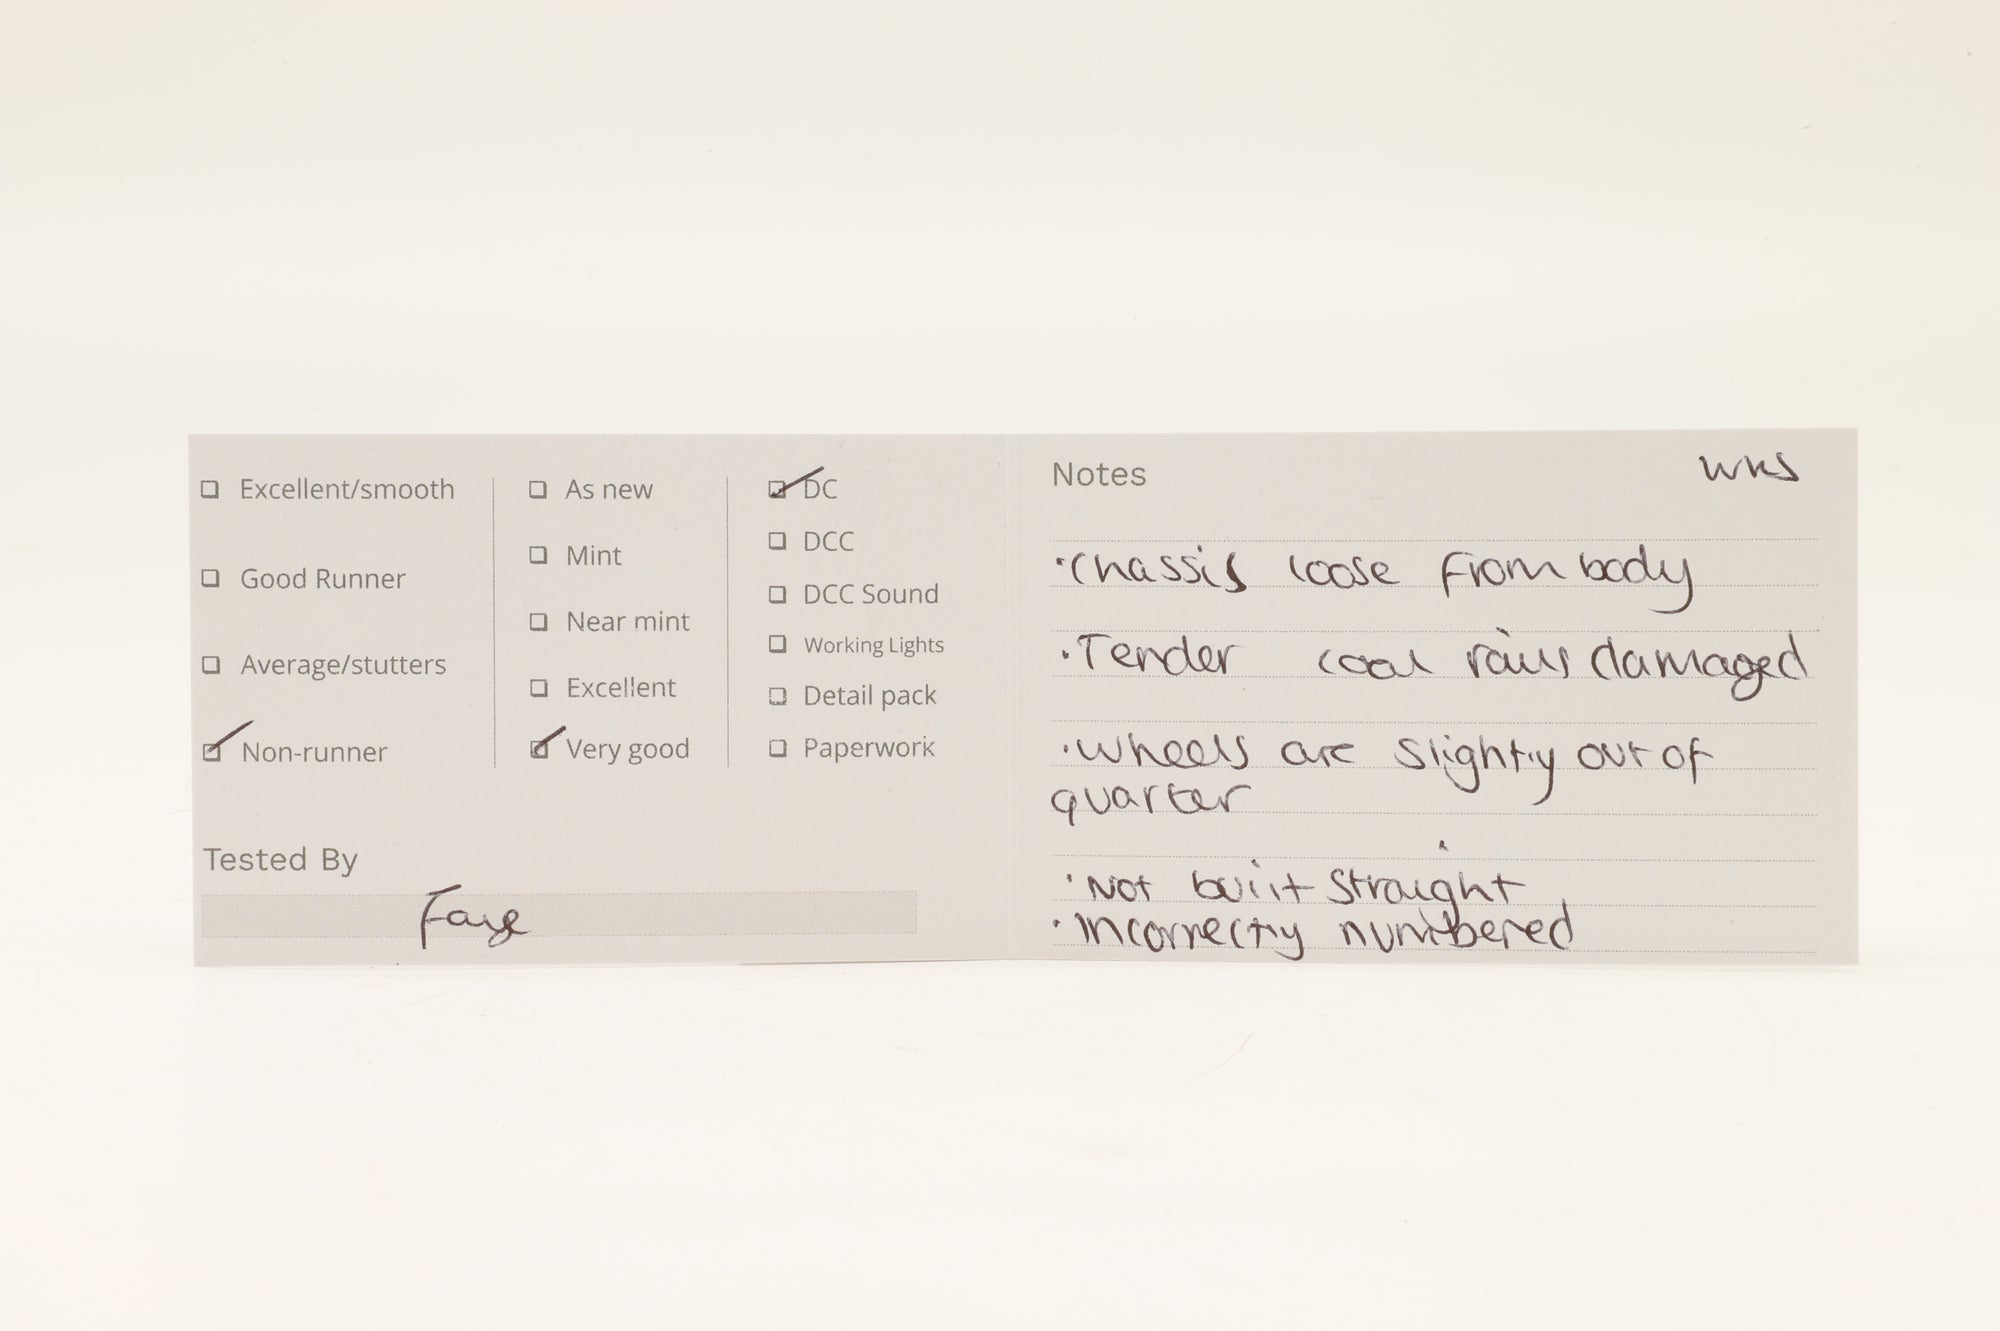 Excellent/smooth
Good Runner
Average/stutters
Non-runner
As new
Mint
Near mint
Excellent
Very good
DC
DCC
DCC Sound
Working Lights
Detail pack
Paperwork
Tested By
Faye
Notes
·Chassis loose from body
·Tender coal rails damaged
·Wheels are slightly out of
quarter
·Not built straight
·Incorrectly numbered